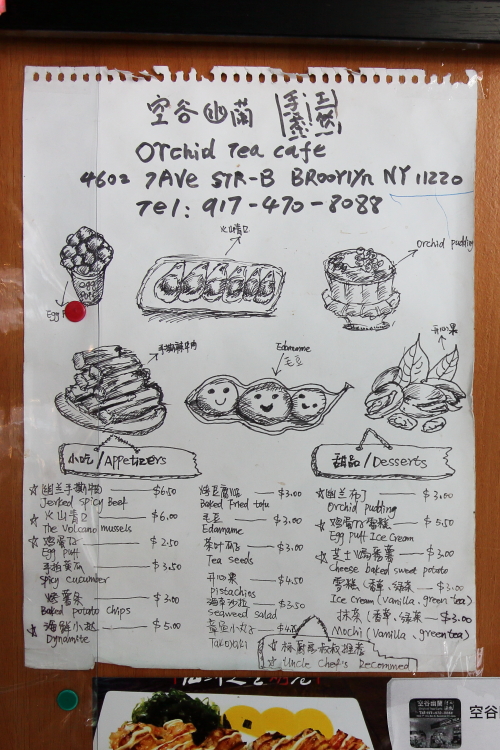 空谷幽蘭
Orchid Tea Cafe
4602 7AVe STR-B BRooklyn NY 11220
Tel: 917-470-8088
火山青口
Orchid pudding
Egg
开心果
手撕鲜牛肉
Edamame
毛豆
小吃/Appetizers
甜品/Desserts
☆ 幽兰手撕牛肉 $6.50
Jerked spicy Beef
☆ 火山青口 $6.00
The Volcano mussels
☆ 鸡蛋仔 $2.50
Egg puff
手拍黄瓜 $3.50
Spicy cucumber
烤薯条 $3.00
Baked potato chips
☆ 海鲜小 $5.00
Dynamite
烤豆腐 $3.00
Baked Fried tofu
毛豆 $3.00
Edamame
茶叶瓜子 $3.00
Tea seeds
开心果 $4.50
Pistachios
海草沙拉 $3.50
Seaweed salad
章鱼小丸子
Takoyaki
☆ 幽兰布丁 $3.00
Orchid pudding
☆ 鸡蛋仔雪糕 $5.50
Egg puff Ice cream
☆ 芝士焗番薯 $3.00
Cheese baked sweet potato
雪糕(香草,绿茶 $3.00
Ice cream (Vanilla, green tea)
抹茶(香草,绿茶 $3.00
Mochi (Vanilla, green tea)
☆ 推荐
☆ Uncle Chef's Recommed
空谷幽蘭
空谷